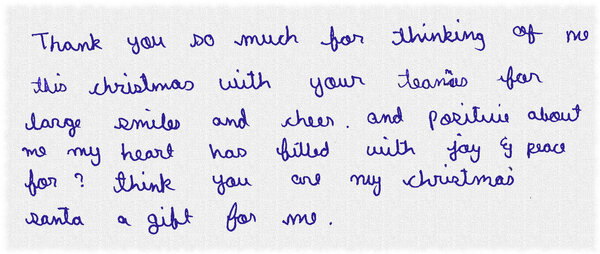 Thank you so much for thinking of me
this christmas with your for
large smiles and cheer. and positive about
me my heart has filled with joy & peace
for? think you are my christmas
santa a gift for me.